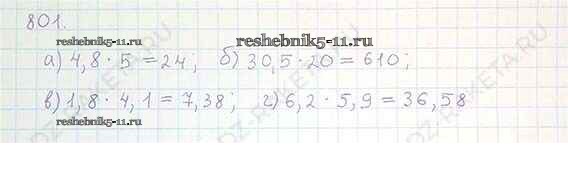 801.
reshebnik5-11.ru
reshebnik5-11.ru
а) 4,8 · 5 = 24; б) 30,5 · 20 = 610;
в) 1,8 · 4,1 = 7,38; г) 6,2 · 5,9 = 36,58
reshebnik5-11.ru